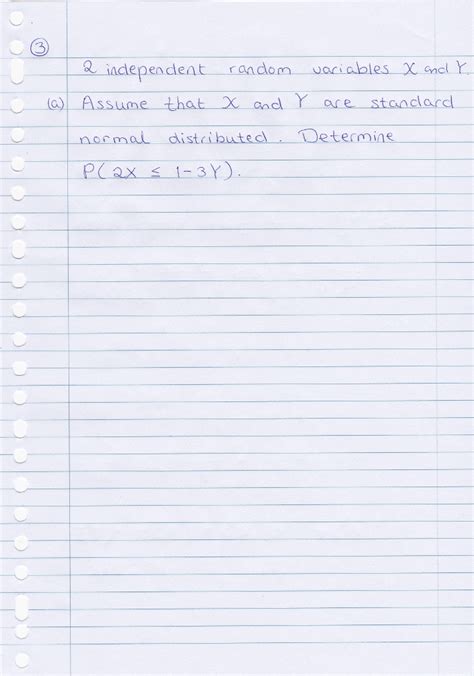 ③
2 independent random variables X and Y.
(a) Assume that X and Y are standard
normal distributed. Determine
P(2X ≤ 1-3Y).